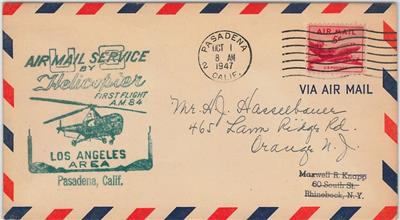 U S
AIR MAIL SERVICE
BY
Helicopter
FIRST FLIGHT
A.M. 84
LOS ANGELES
AREA
Pasadena, Calif.
PASADENA
2
OCT 1
8 AM
1947
CALIF.
AIR MAIL
6¢
VIA AIR MAIL
Mr. H. J. Hasselbauer
465 Ridge Rd.
Orange N. J.
Maxwell R. Knapp
60 South St.
Rhinebeck, N. Y.